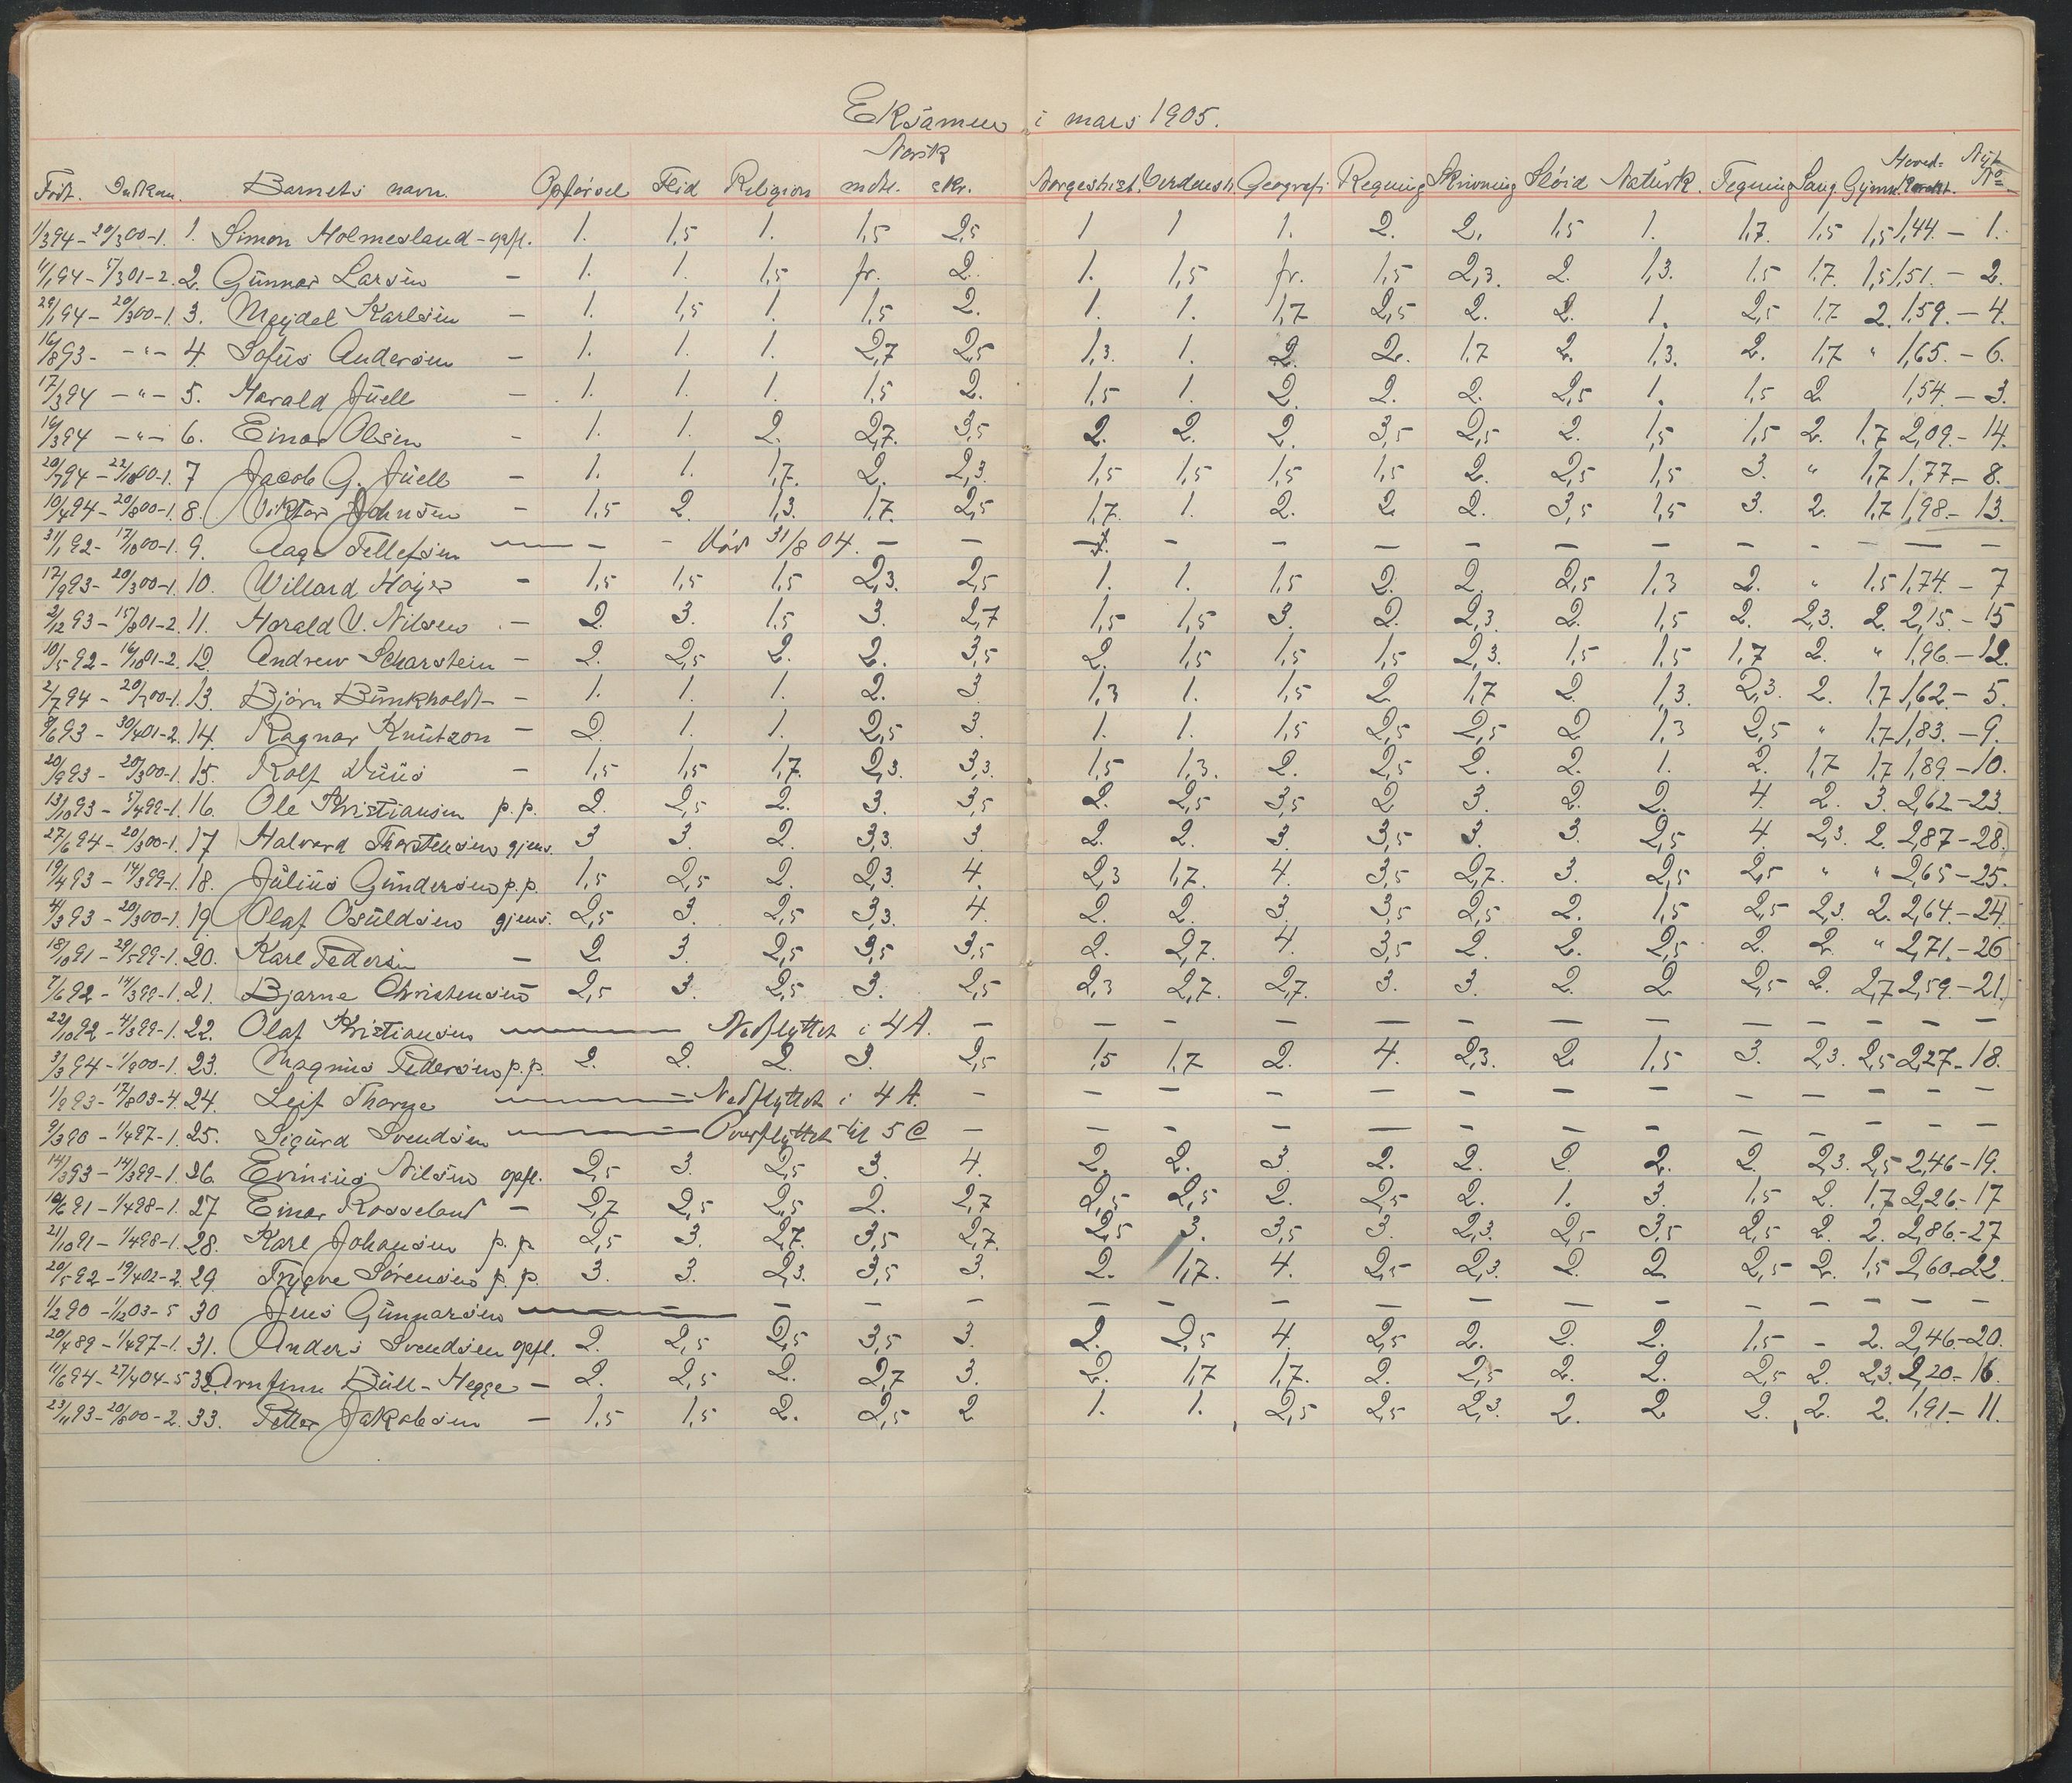 Eksamen i mars 1905.
Norsk
Født. Indkom. Barnets navn. Opførsel Flid Religion mdtl. skr. Norgeshist. Verdensh. Geografi Regning Skrivning Sløid Naturk. Tegning Sang. Gymn. Hoved-Karakt. Nyt No
1/3 94 - 20/3 00-1. 1. Simon Holmesland - opfl. 1. 1,5 1. 1,5 2,5 1 1 1. 2. 2. 1,5 1. 1,7. 1,5 1,5 1,44. - 1.
11/1 94 - 5/3 01-2. 2. Gunnar Larsen - 1. 1. 1,5 fr. 2. 1. 1,5 fr. 1,5 2,3. 2. 1,3. 1.5 1.7. 1,5 1,51. - 2.
29/1 94 - 20/3 00-1. 3. Meydel Karlsen - 1. 1,5 1. 1,5 2. 1. 1. 1,7 2,5 2. 2. 1. 2,5 1.7 2. 1,59. - 4.
16/8 93 - -"- 4. Sofus Andersen - 1. 1. 1. 2,7 2,5 1,3. 1. 2. 2. 1.7 2. 1,3. 2. 1,7 " 1,65. - 6.
17/3 94 - -"- 5. Harald Juell - 1. 1. 1. 1,5 2. 1,5 1. 2. 2. 2. 2,5 1. 1,5 2 1,54. - 3.
16/3 94 - -"- 6. Einar Olsen - 1. 1. 2. 2,7. 3,5 2. 2. 2. 3,5 2,5 2. 1,5 1,5 2. 1.7 2,09. - 14.
20/7 94 - 22/10 00-1. 7 Jacob G. Juell - 1. 1. 1,7. 2. 2,3. 1,5 1,5 1,5 1,5 2. 2,5 1,5 3. " 1,7 1,77. - 8.
10/4 94 - 20/8 00-1. 8. Viktor Johnsen - 1,5 2. 1,3. 1.7. 2,5 1,7. 1. 2. 2. 2. 3,5 1,5 3. 2. 1,7 1,98. - 13.
31/1 92 - 17/10 00-1. 9. Aage Tellefsen - - Død 31/8 04. - - - - - - - - - - - - - -
17/9 93 - 20/3 00-1. 10. Willard Høyer - 1,5 1,5 1,5 2,3. 2,5 1. 1. 1,5 2. 2. 2,5 1,3 2. " 1.5 1,74. - 7
2/12 93 - 15/8 01-2. 11. Harald V. Nilsen - 2. 3. 1.5 3. 2,7 1,5 1,5 3. 2. 2,3. 2. 1,5 2. 2,3. 2. 2,15. - 15
10/5 92 - 16/10 01-2. 12. Andrew Scharstein - 2. 2,5 2. 2. 3,5 2. 1,5 1,5 1,5 2,3. 1,5 1,5 1,7 2. " 1,96. - 12.
2/7 94 - 20/3 00-1. 13. Bjørn Bunkholdt - 1. 1. 1. 2. 3 1,3 1. 1,5 2. 1,7 2. 1,3. 2,3. 2. 1.7 1,62 - 5.
8/6 93 - 30/4 01-2. 14. Ragnar Knutzon - 2. 1. 1. 2,5 3. 1. 1. 1,5 2,5 2,5 2 1,3 2,5 " 1,7 1,83. - 9.
20/9 93 - 20/3 00-1. 15. Rolf Duus - 1,5 1,5 1,7. 2,3. 3,3. 1,5 1,3. 2. 2,5 2. 2. 1. 2. 1,7 1,7 1,89. - 10.
13/10 93 - 5/4 99-1. 16. Ole Kristiansen p.p. 2. 2,5 2. 3. 3,5 2. 2,5 3,5 2 3. 2. 2. 4. 2. 3. 2,62 - 23.
27/6 94 - 20/3 00-1. 17 Halvard Thorstensen gjens. 3 3. 2. 3,3. 3 2. 2. 3. 3,5 3. 3. 2,5 4. 2,3. 2. 2,87 - 28.
19/4 93 - 14/3 99-1. 18. Julius Gundersen p.p. 1,5 2,5 2. 2,3. 4. 2,3 1,7. 4. 3,5 2,7. 3. 2,5 2,5 " " 2,65 - 25.
4/3 93 - 20/3 00-1. 19 Olaf Osuldsen gjens. 2,5 3. 2,5 3,3. 4. 2. 2. 3. 3,5 2,5 2. 1,5 2,5 2,3. 2. 2,64. - 24.
18/10 91 - 29/5 99-1. 20. Karl Pedersen - 2. 3. 2,5 3,5 3,5 2. 2,7. 4. 3,5 2. 2. 2,5 2. 2. " 2,71. - 26
7/6 92 - 14/3 99-1. 21. Bjarne Christensen - 2,5 3. 2,5 3. 2,5 2,3 2,7. 2,7. 3. 3. 2. 2 2,5 2. 2,7 2,59. - 21.
22/10 92 - 4/3 99-1. 22. Olaf Kristiansen Nedflyttet i 4 A. - - - - - - - - - - - - -
3/3 94 - 1/9 00-1. 23. Magnus Pedersen p.p. 2. 2. 2. 3. 2,5 1,5 1,7 2. 4. 2,3. 2 1,5 3. 2,3. 2,5 2,27. - 18.
1/9 93 - 17/8 03-4. 24. Leif Thorne Nedflyttet i 4 A. - - - - - - - - - - - - -
9/3 90 - 1/4 97-1. 25. Sigurd Svendsen Overflyttet til 5 C - - - - - - - - - - - - -
14/3 93 - 14/3 99-1. 26. Evinius Nilsen opfl. 2,5 3. 2,5 3. 4. 2. 2. 3. 2. 2. 2. 2. 2. 2,3. 2,5 2,46 - 19.
10/6 91 - 1/4 98-1. 27 Einar Rosseland - 2,7 2,5 2,5 2. 2,7 2,5 2,5 2. 2,5 2. 1. 3. 1,5 2. 1,7 2,26 - 17
21/10 91 - 1/4 98-1. 28. Karl Johansen p.p 2,5 3. 2,7. 3,5 2,7. 2,5 3. 3,5 3. 2,3. 2,5 3,5 2,5 2. 2. 2,86. - 27
20/5 92 - 19/4 02-2. 29 Trygve Sørensen p.p. 3. 3. 2,3. 3,5 3. 2. 1,7. 4. 2,5 2,3. 2. 2. 2,5 2. 1,5 2,60 - 22.
1/2 90 - 1/12 03-5 30 Jens Gunnarsen - - - - - - - - - - - - - - -
20/4 89 - 1/4 97-1. 31. Anders Svendsen opfl. 2. 2,5 2,5 3,5 3. 2. 2,5 4. 2,5 2. 2. 2. 1.5 - 2. 2,46 - 20.
11/6 94 - 27/4 04-5 32. Arnfinn Bull-Hegge - 2. 2,5 2. 2,7 3. 2. 1,7 1,7. 2. 2,5 2. 2. 2,5 2. 2,3. 2,20. - 16.
23/11 93 - 20/8 00-2. 33. Petter Jakobsen - 1,5 1,5 2. 2,5 2 1. 1. 2,5 2,5 2,3. 2. 2 2. 2. 2. 1,91. - 11.